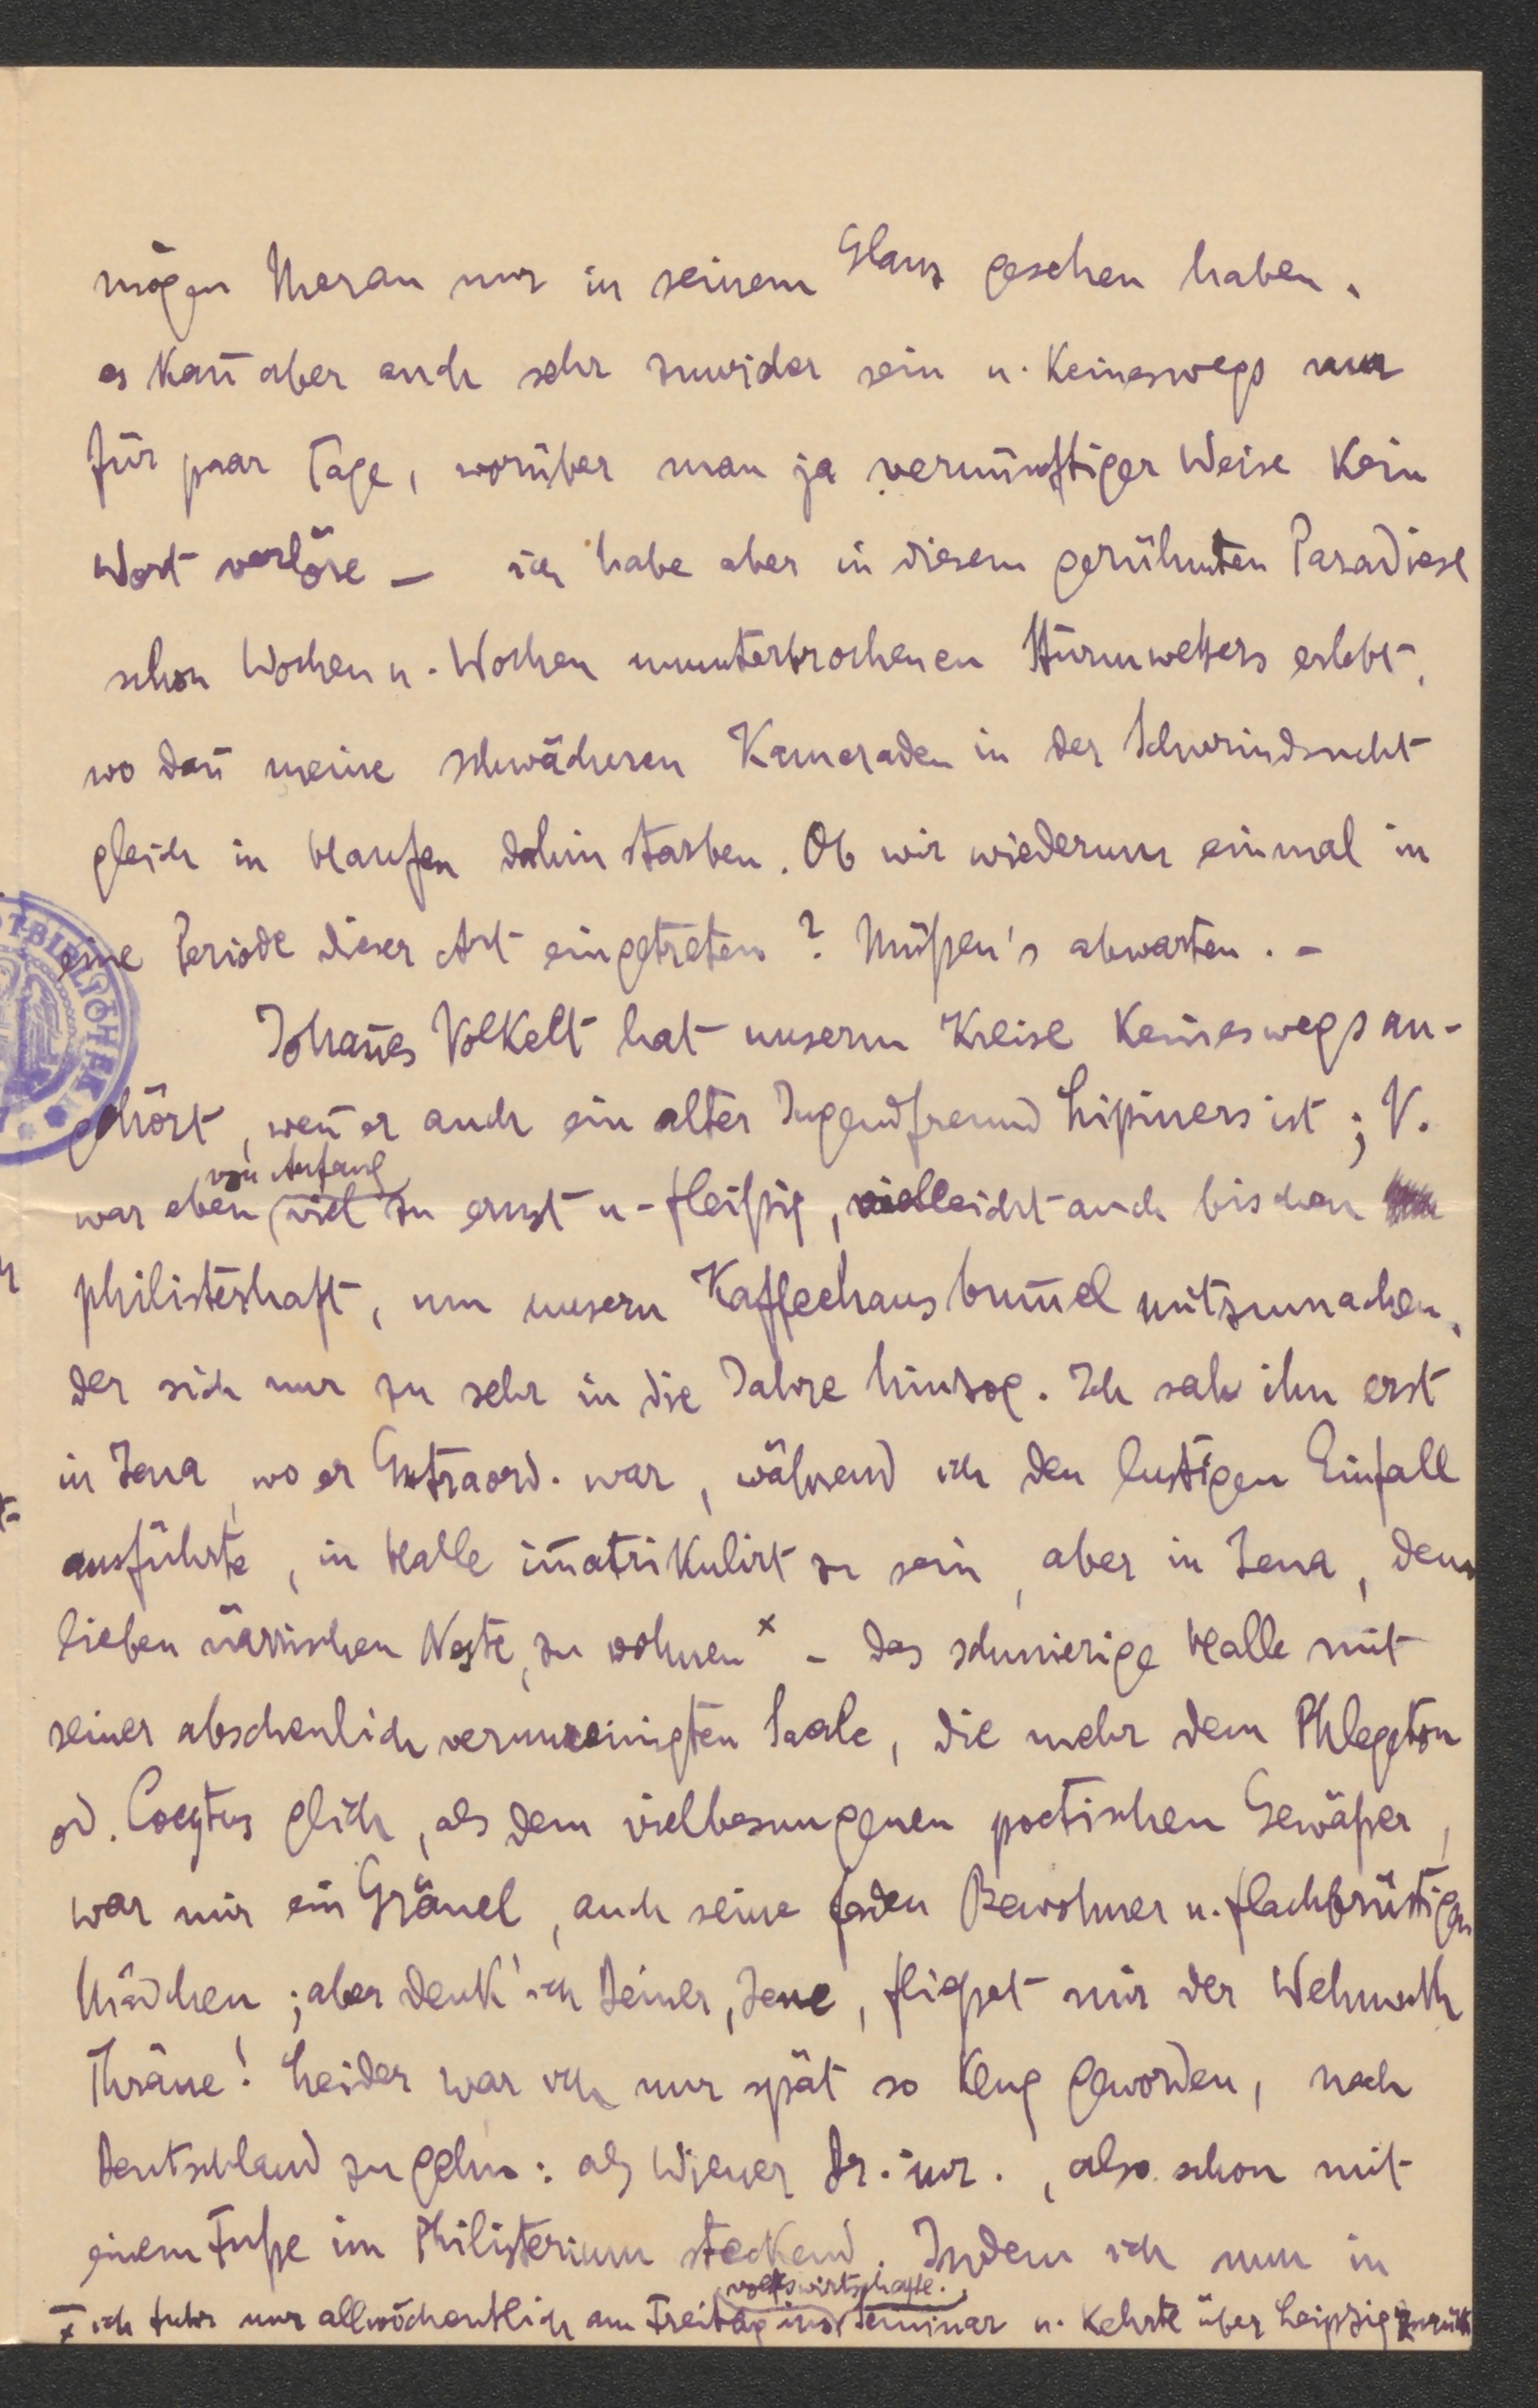 mögen Meran nur in seinem Glanz gesehen haben,
es kan̄ aber auch sehr zuwider sein u. keineswegs nur
für paar Tage, worüber man ja vernünftiger Weise kein
Wort verlöre – ich habe aber in diesem gerühmten Paradiese
schon Wochen u. Wochen ununterbrochenen Sturmwetters erlebt,
wo dan̄ meine schwächeren Kameraden in der Schwindsucht
gleich in Haufen dahin starben. Ob wir wiederum einmal in
eine Periode dieser Art eingetreten? Müßen's abwarten. –
Johan̄es Volkelt hat unserm Kreise keineswegs an-
gehört, wen̄ er auch ein alter Jugendfreund Lipiners ist; V.
von Anfang
war eben viel zu ernst u. fleißig, vielleicht auch bischen
philisterhaft, um unsern Kaffeehausbum̄el mitzumachen,
der sich nur zu sehr in die Jahre hinzog. Ich sah ihn erst
in Jena, wo er Extraord. war, während ich den lustigen Einfall
ausführte, in Halle im̄atrikulirt zu sein, aber in Jena, dem
lieben närrischen Neste, zu wohnen x – das schmierige Halle mit
seiner abscheulich verunreinigten Saale, die mehr dem Phlegeton
od. Cocytus glich, als dem vielbesungenen poetischen Gewäßer,
war mir ein Gräuel, auch seine faden Bewohner u. flachbrüstigen
Mädchen; aber denk' ich Deiner, Jena, fließet mir der Wehmuth
Thräne! Leider war ich nur spät so klug geworden, nach
Deutschland zu gehn: als Wiener Dr. iur., also schon mit
einem Fuße im Philisterium steckend. Indem ich nun in
volkswirtschaftl.
x ich fuhr nur allwöchentlich am Freitag ins Seminar u. kehrte über Leipzig zurück
BIBLIOTHEK